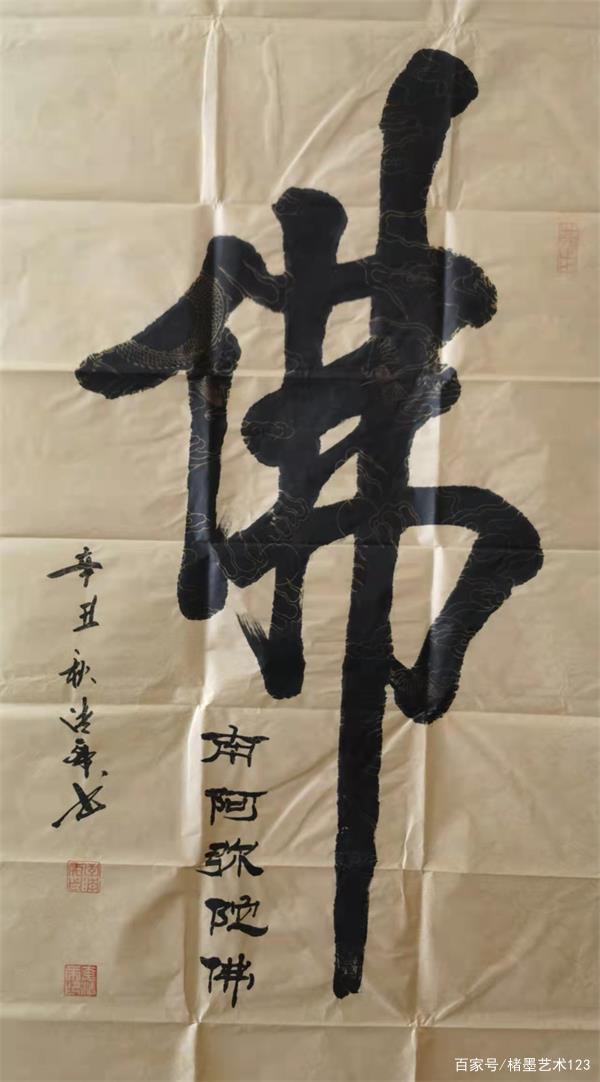 佛
南阿弥陀佛
辛丑秋书
百家号/楮墨艺术123